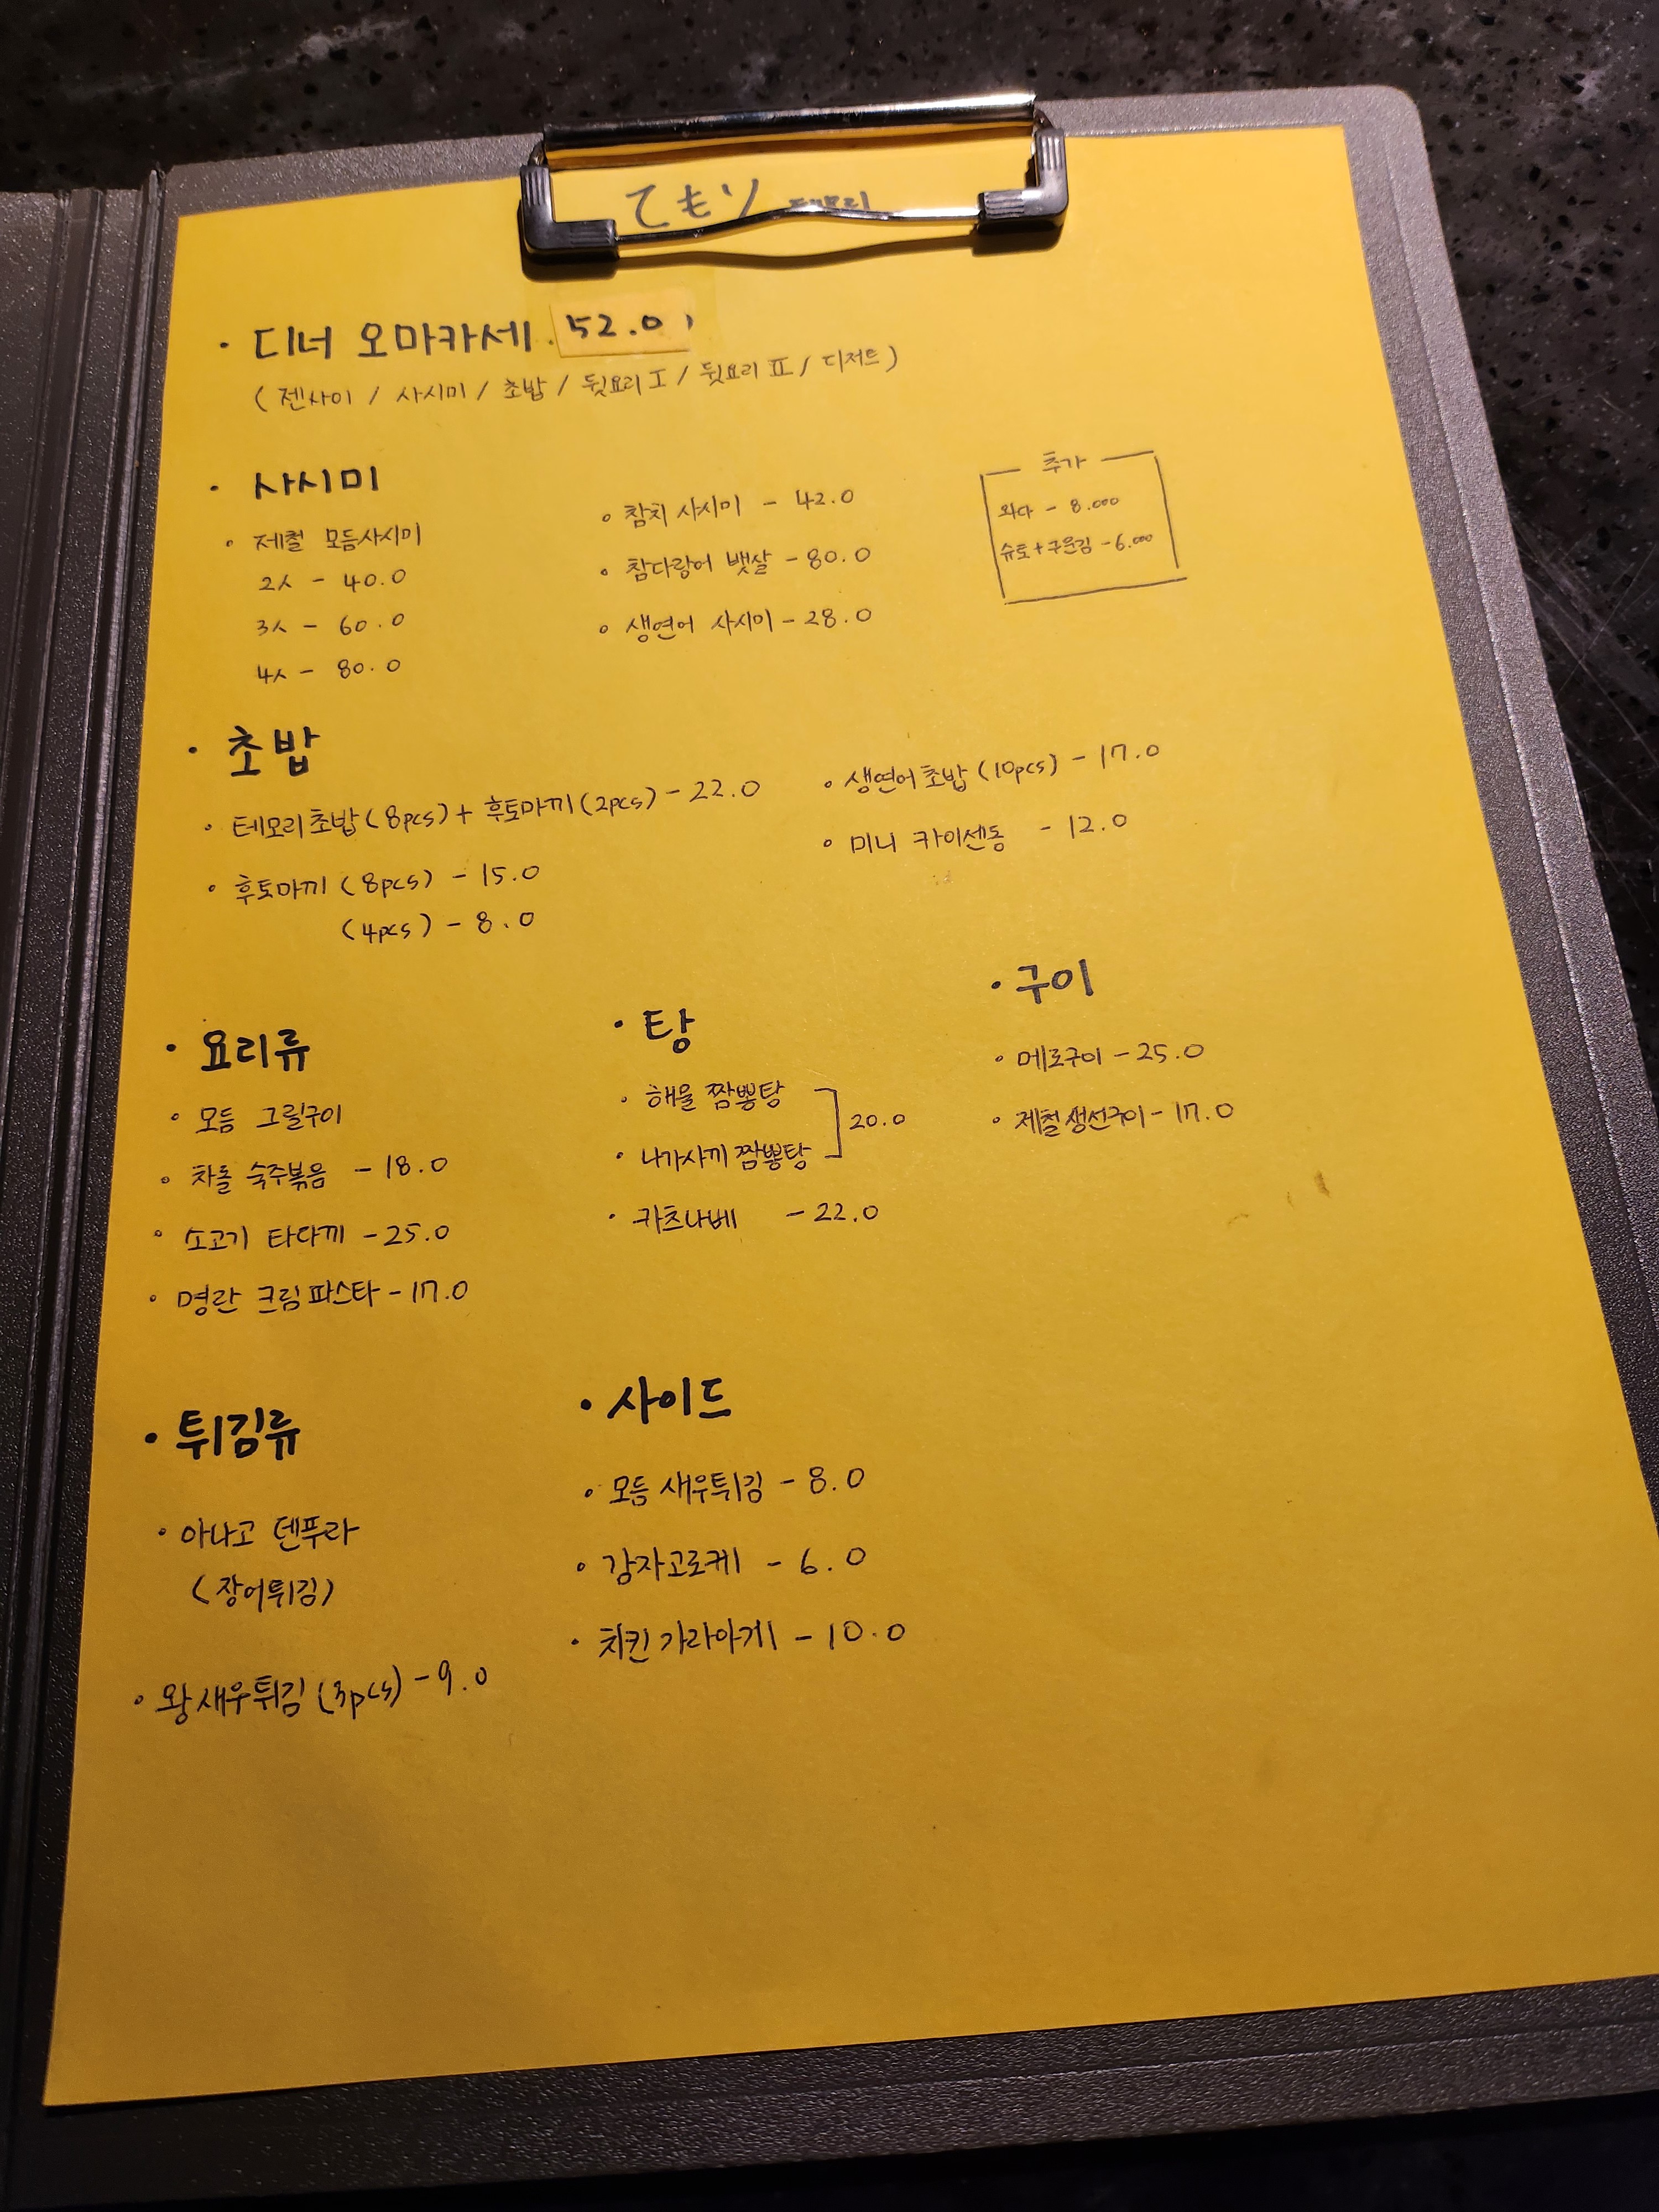 てもり 테모리
· 디너 오마카세 52.0
( 젠사이 / 사시미 / 초밥 / 뒷요리 I / 뒷요리 II / 디저트 )
· 사시미
· 제철 모듬사시미
2人 - 40.0
3人 - 60.0
4人 - 80.0
· 참치 사시미 - 42.0
· 참다랑어 뱃살 - 80.0
· 생연어 사시미 - 28.0
추가
와다 - 8.000
슈토+구운김 - 6.000
· 초밥
· 테모리초밥(8pcs) + 후토마끼(2pcs) - 22.0
· 후토마끼 (8pcs) - 15.0
(4pcs) - 8.0
· 생연어초밥 (10pcs) - 17.0
· 미니 카이센동 - 12.0
· 요리류
· 모듬 그릴구이
· 차돌 숙주볶음 - 18.0
· 소고기 타다끼 - 25.0
· 명란 크림파스타 - 17.0
· 탕
· 해물 짬뽕탕
· 나가사끼 짬뽕탕
20.0
· 카츠나베 - 22.0
· 구이
· 메로구이 - 25.0
· 제철생선구이 - 17.0
· 튀김류
· 아나고 덴푸라
(장어튀김)
· 왕새우튀김 (3pcs) - 9.0
· 사이드
· 모듬 새우튀김 - 8.0
· 감자고로케 - 6.0
· 치킨 가라아게 - 10.0